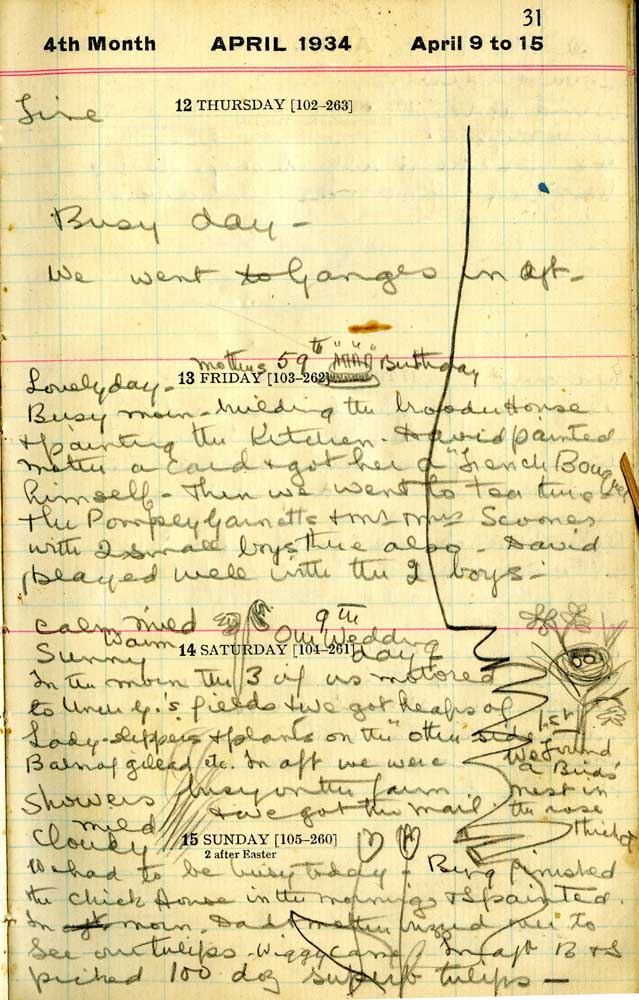 31
4th Month APRIL 1934 April 9 to 15
12 THURSDAY [102–263]
Fine
Busy day –
We went to Ganges in aft –
Mothers 59th Birthday
13 FRIDAY [103–262]
Lovely day –
Busy morn – building the brooder House
& painting the Kitchen. David painted
mother a card & got her a "French Bouquet
himself – Then we went to tea there
the Pompey Garnetts & Mr & Mrs Scoones
with 2 small boys there also – David
played well with the 2 boys –
calm mild
Warm
Sunny
Our 9th Wedding
day
14 SATURDAY [104–261]
In the morn the 3 of us motored
to Uncle G.'s fields & we got heaps of
Lady-slippers & plants on the "other side"
Balm of gilead etc. In aft we were
busy on the farm
& we got the mail
1st
We found
a Birds'
nest in
the rose
thicket
Showers
mild
Cloudy
15 SUNDAY [105–260]
2 after Easter
We had to be busy today – finished
the chick House in the mornings & I painted.
In aft morn. Dad & mother over to
See our tulips – Wiggy came. In aft B & I
picked 100 doz superb tulips –